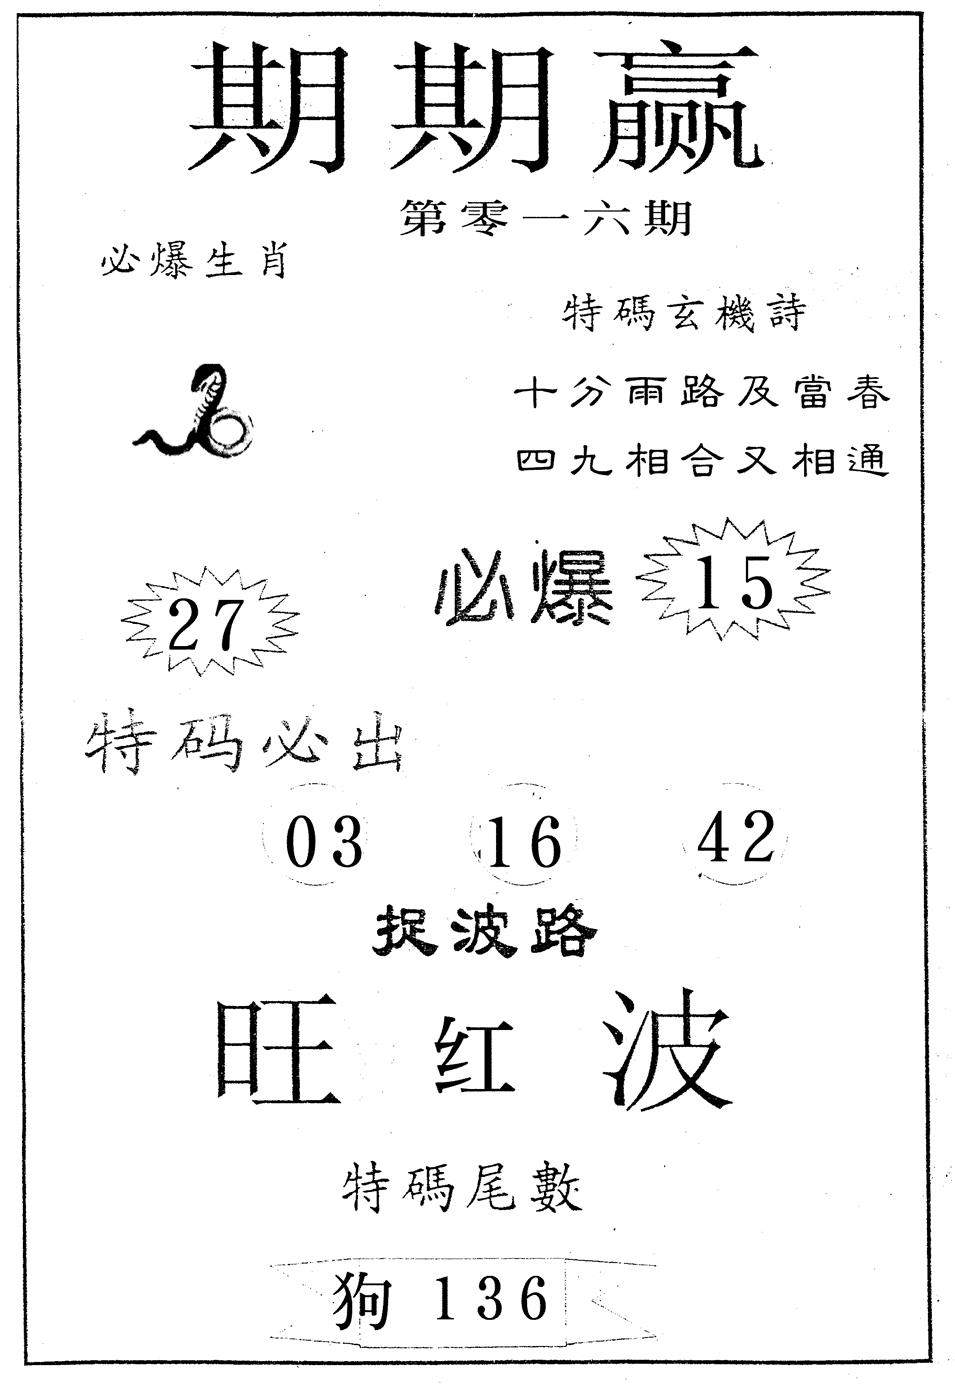 期期赢
第零一六期
必爆生肖
特碼玄機詩
十分雨路及當春
四九相合又相通
必爆 15
27
特码必出
03 16 42
捉波路
旺红波
特碼尾數
狗 136